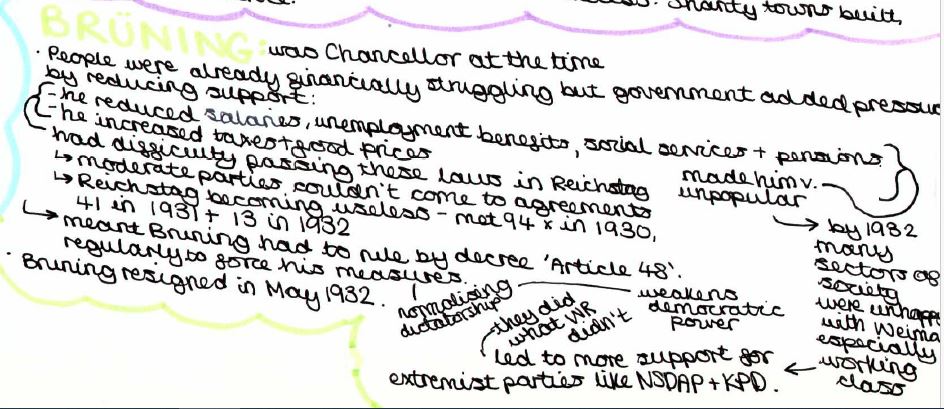 Shanty towns built,
BRÜNING: was Chancellor at the time
· People were already financially struggling but government added pressu
by reducing support:
- he reduced salaries, unemployment benefits, social services + pensions
- he increased taxes + food prices
had difficulty passing these laws in Reichstag
↳ moderate parties couldn't come to agreements
↳ Reichstag becoming useless - met 94 x in 1930,
41 in 1931 + 13 in 1932
→ meant Bruning had to rule by decree 'Article 48'.
regularly to force his measures.
· Bruning resigned in May 1932.
made him v.
unpopular
→ by 1932
many
sectors of
society
were unhapp
with Weima
especially
working
class
normalising
dictatorship
weakens
democratic
power
they did
what WR
didn't
led to more support for
extremist parties like NSDAP + KPD.